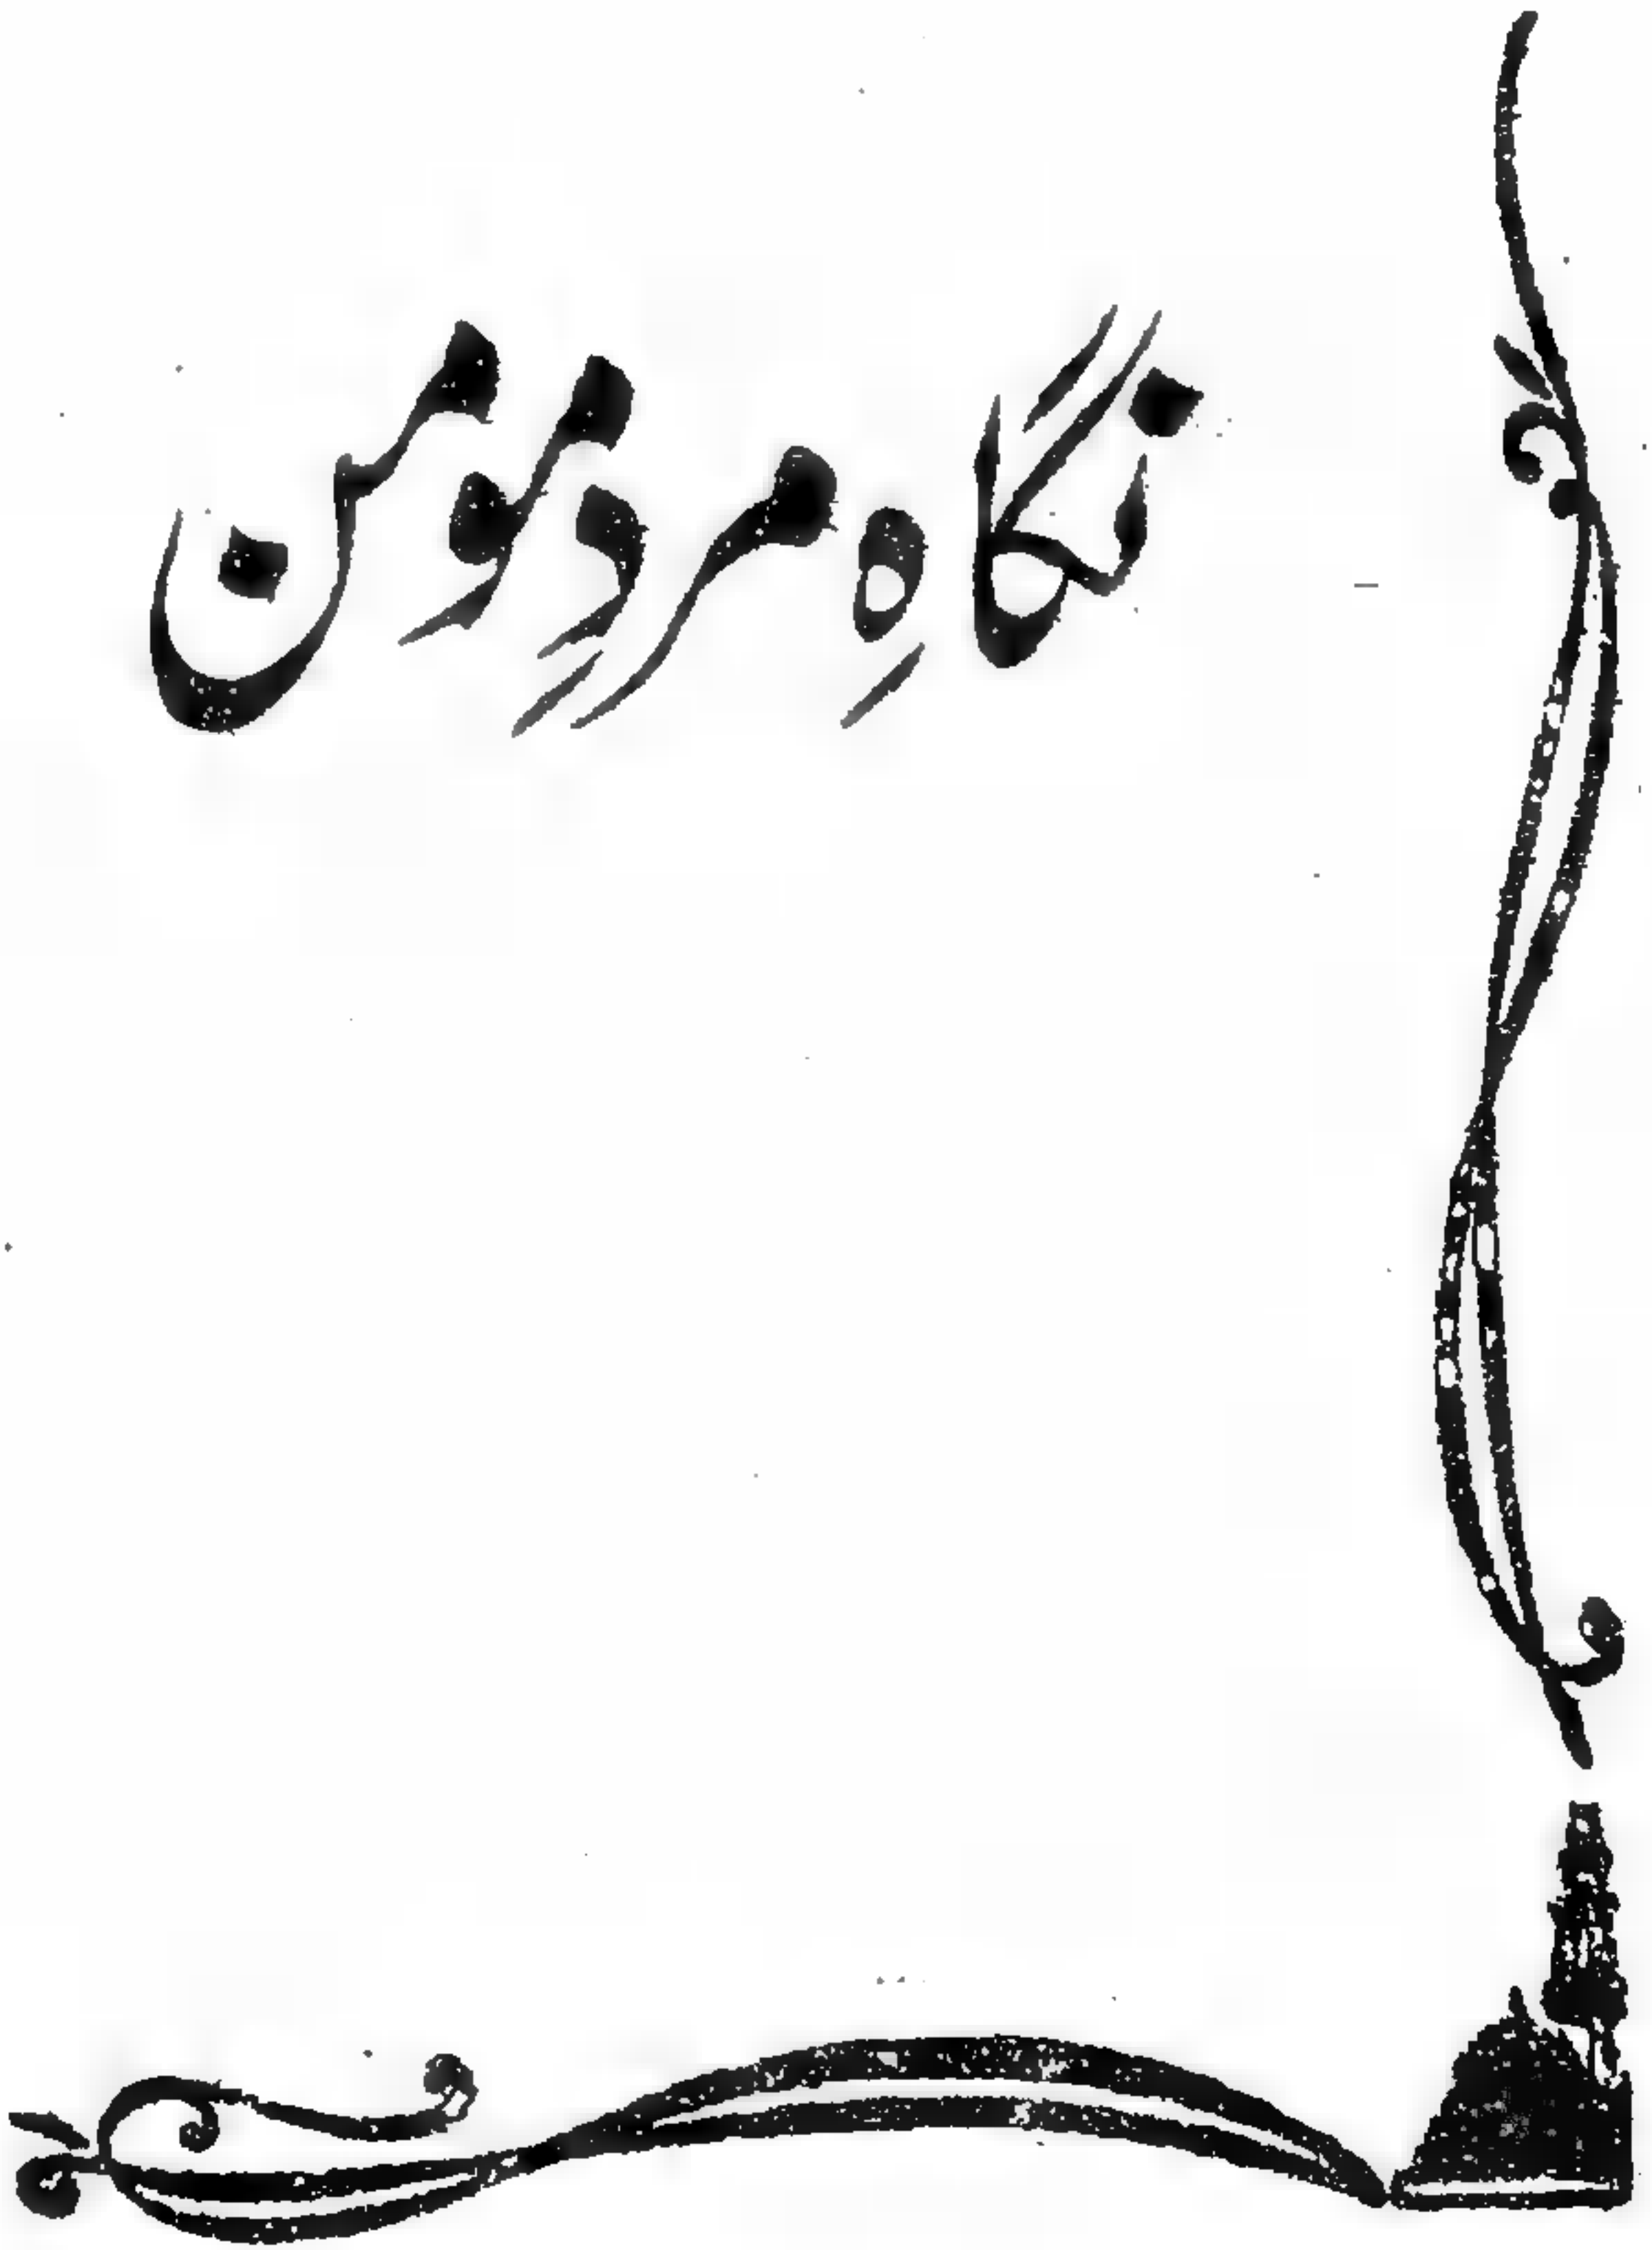 نگاہِ مردِ مومن